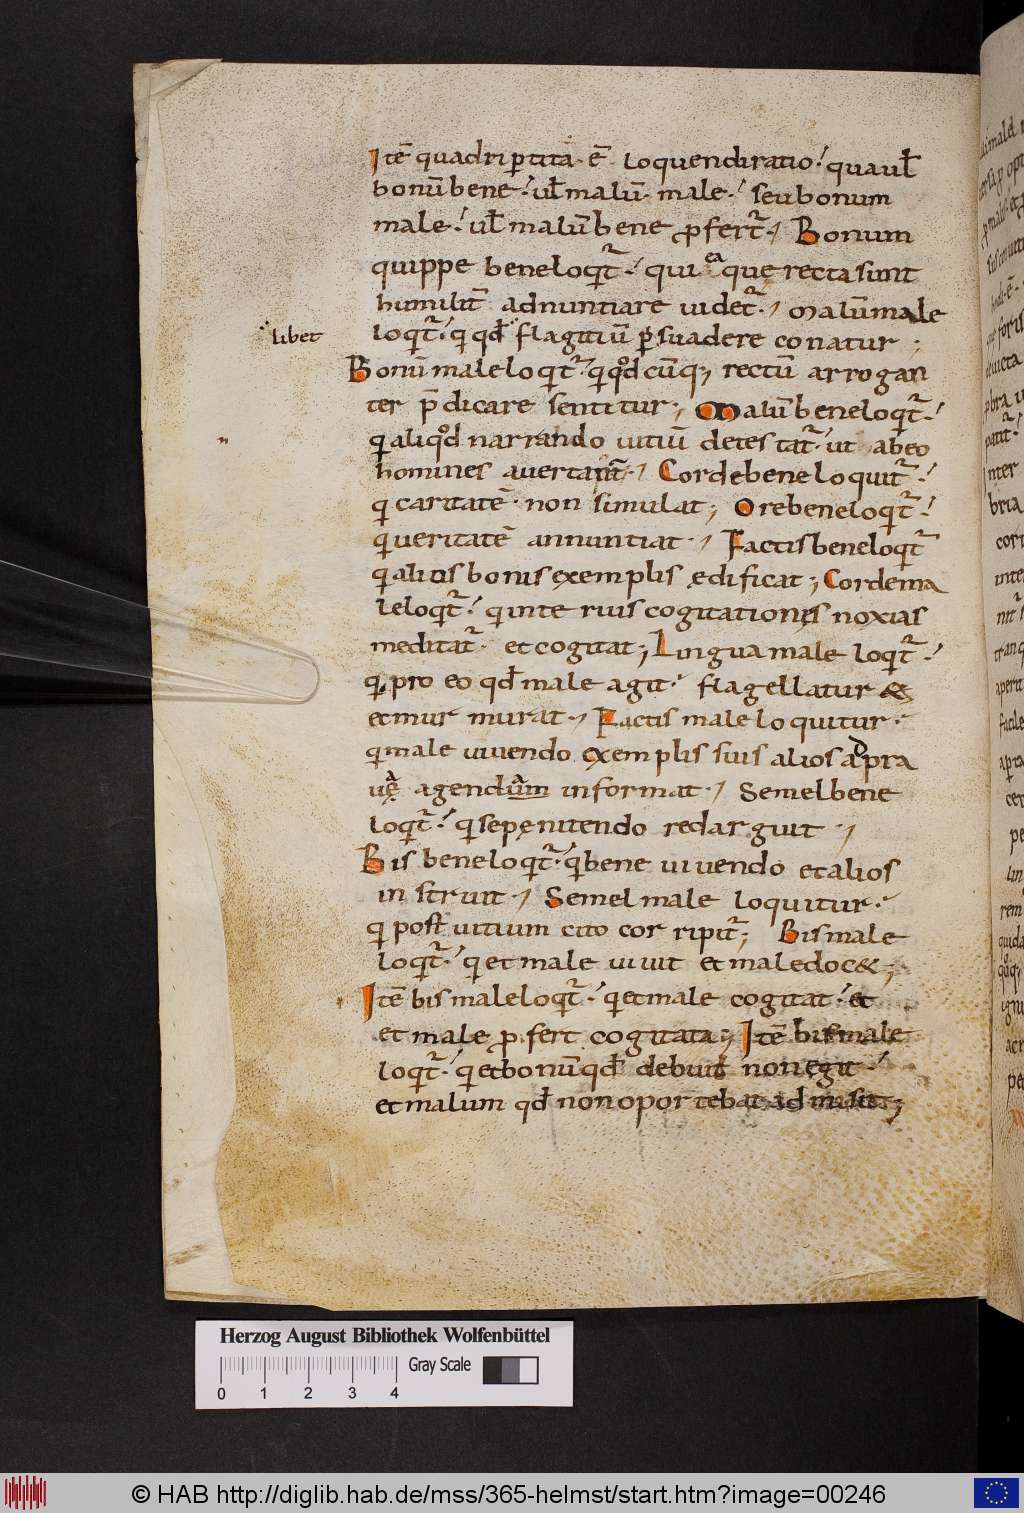 Itē quadriꝑtita · ē · loquendi ratio · qua aul̄
bonū bene · ul̄ malū · male · seu bonum
male · ul̄ malū bene ꝓfert᷑ · Bonum
quippe bene loqit᷑ · qui ea que recta sunt
humilit᷑ adnuntiare uidet᷑ · Malū male
libet
loqit᷑ · qi qd̄ flagitiū ꝑsuadere conatur ;
Bonū male loqit᷑ · qi qod cūq; rectū arrogan
ter p̄dicare sentitur ; Malū bene loqit᷑ ·
qi aliqod narrando uitiū detestat᷑ · ut ab eo
homines auertant᷑ · Corde bene loquit᷑ ·
qi caritatē · non simulat ; Ore bene loqit᷑ ·
qi ueritatē annuntiat · Factis bene loqit᷑
qi aliois bonis exemplis ędificat ; Corde ma
le loqit᷑ · qi interius cogitationes noxias
meditat᷑ · et cogitat ; Lingua male loqit᷑ ·
qi pro eo qd̄ male agit · flagellatur &
et murmurat · Factis male loquitur ·
qi male uiuendo exemplis suis alios ad praua
agendum informat · Semel bene
loqit᷑ · qi se pęnitendo redarguit ·
Bis bene loqit᷑ · qi bene uiuendo et alios
instruit · Semel male loquitur ·
qi post uitium cito corripit᷑ ; Bis male
loqit᷑ · qi et male uiuit et male doc& ;
Itē bis male loqit᷑ · qi et male cogitat · et
et male ꝓfert cogitata ; Itē bis male
loqit᷑ · qi et bonū qd̄ debuit non egit ·
et malum qd̄ non oportebat admisit ;
Herzog August Bibliothek Wolfenbüttel
Gray Scale
0 1 2 3 4
© HAB http://diglib.hab.de/mss/365-helmst/start.htm?image=00246